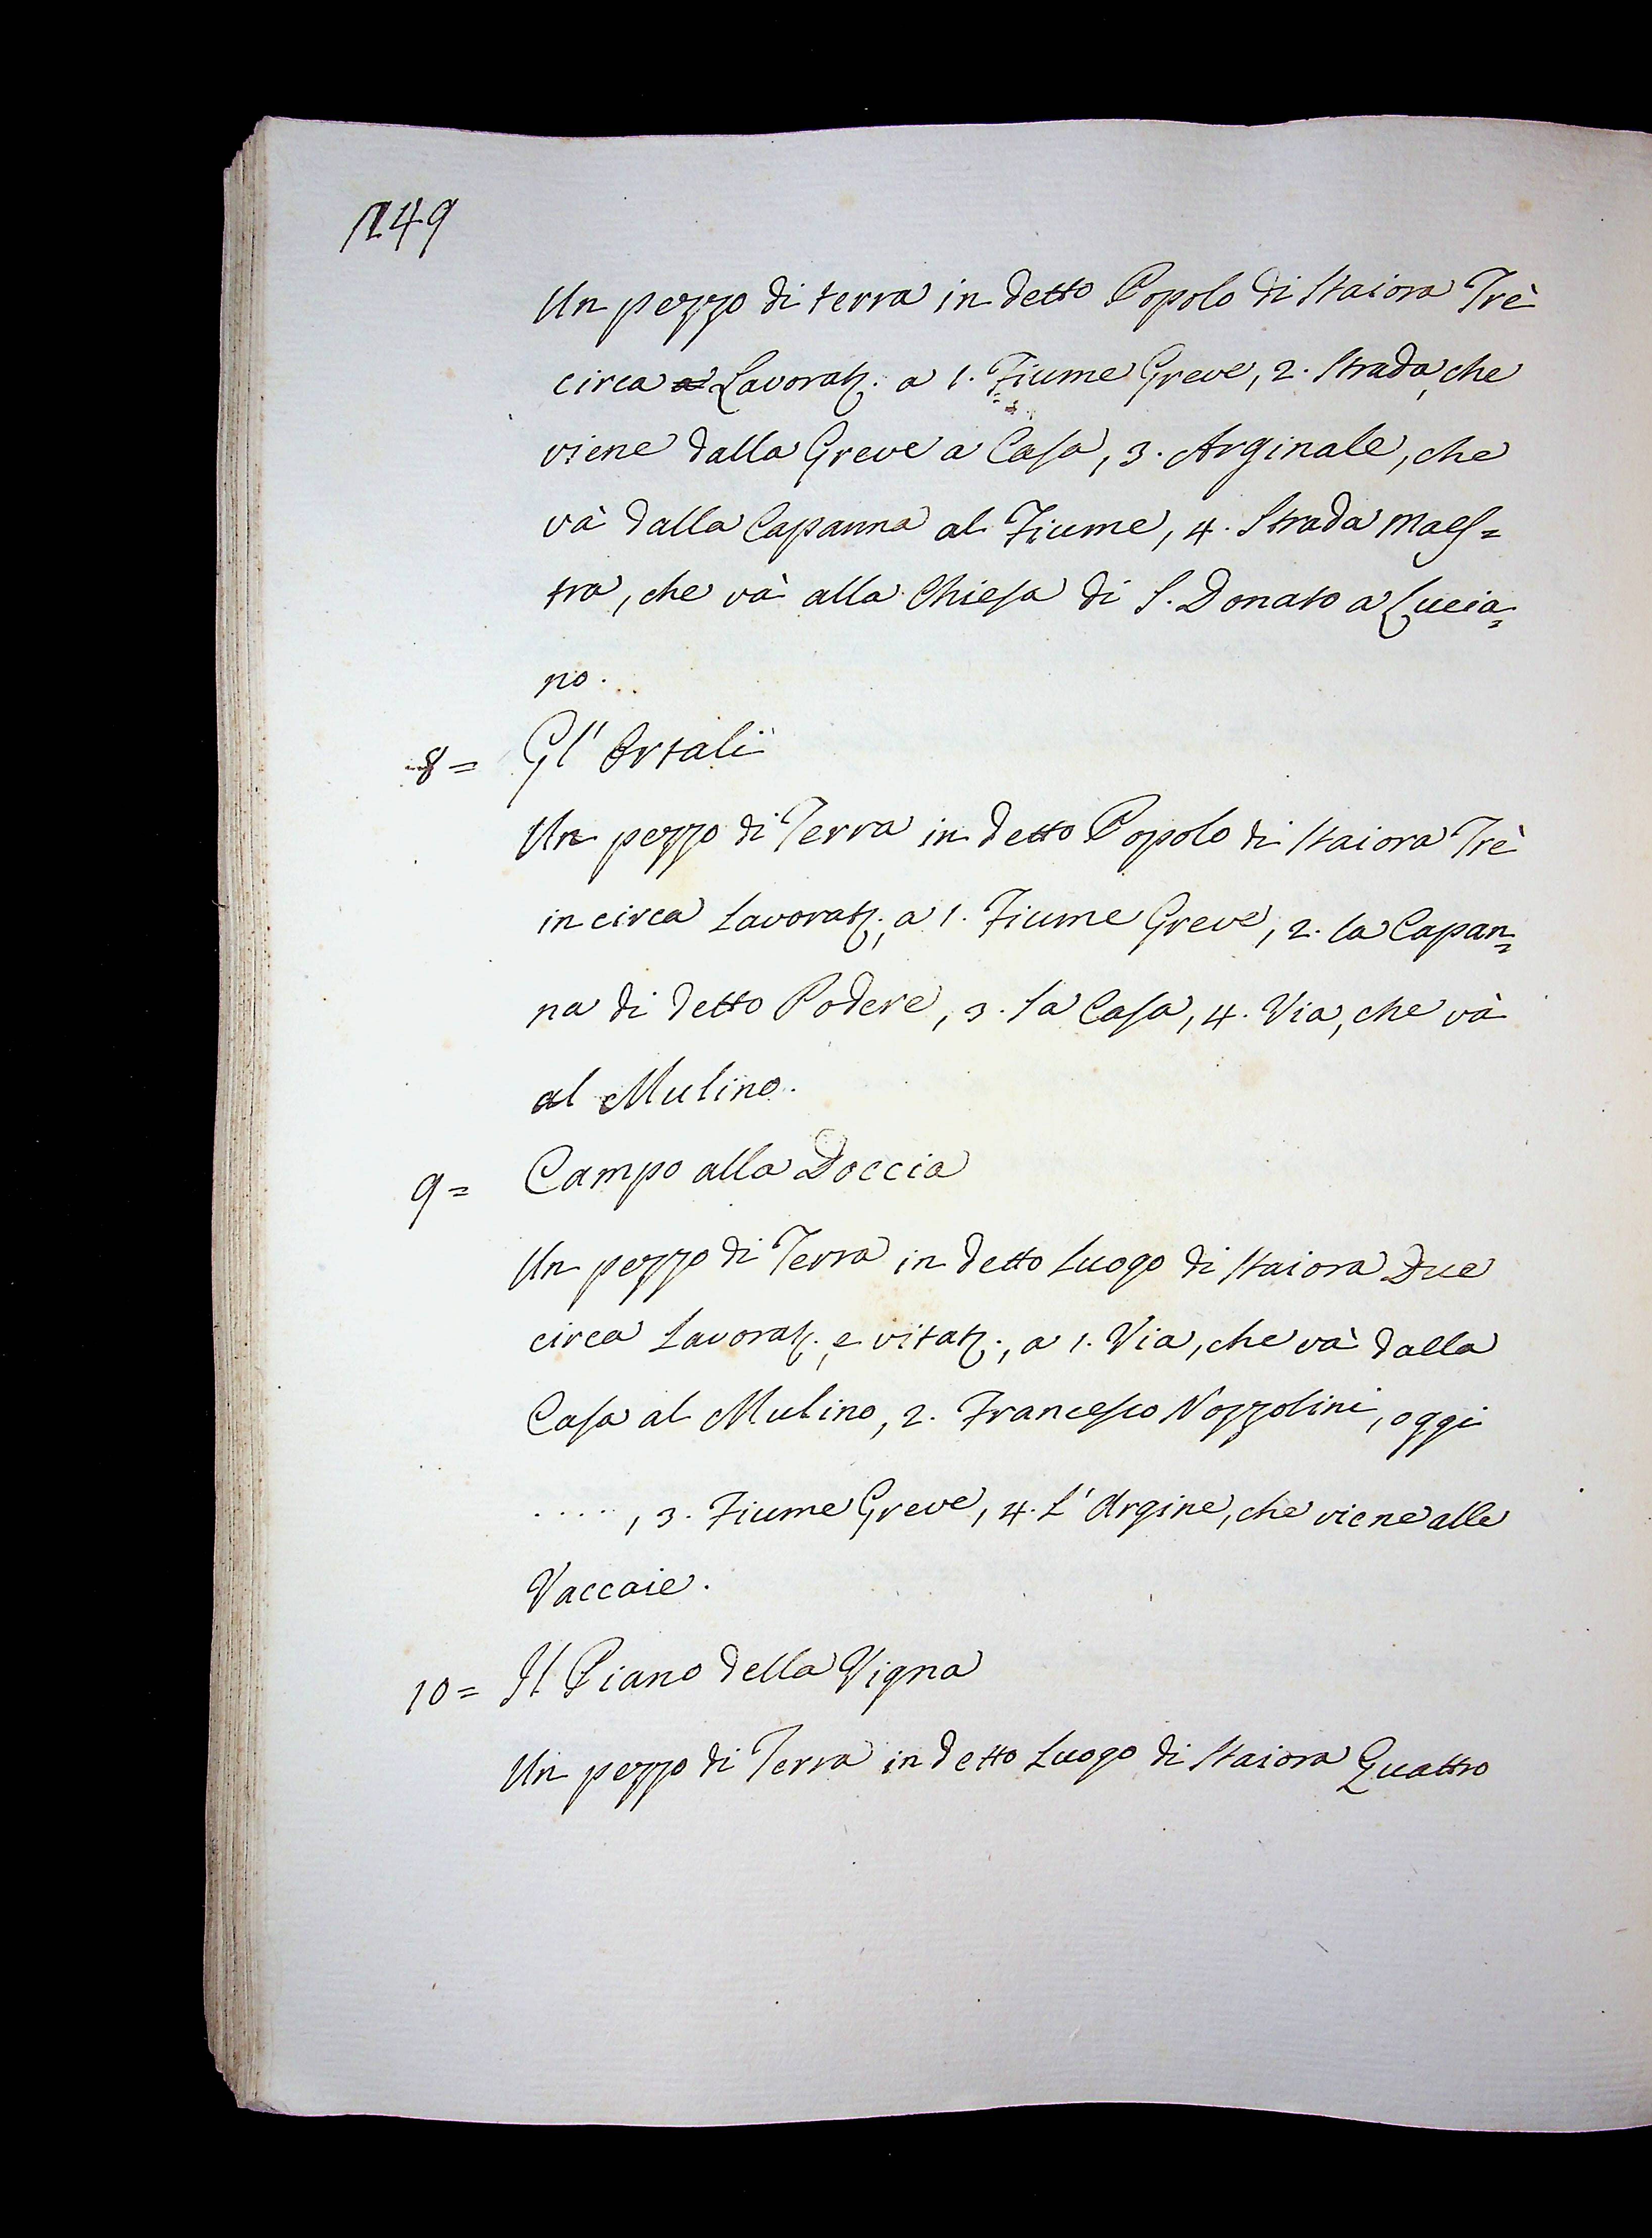 149
Un pezzo di terra in detto Popolo di Staiora Trè
circa Lavorat. a 1. Fiume Greve, 2. Strada, che
viene dalla Greve a Casa, 3. Arginale, che
và dalla Capanna al Fiume, 4. Strada Maes=
tra, che và alla Chiesa di S. Donato a Lucia=
no.
8= Gl' Ortali
Un pezzo di Terra in detto Popolo di Staiora Trè
in circa Lavorat., a 1. Fiume Greve, 2. la Capan=
na di detto Podere, 3. la Casa, 4. Via, che và
al Mulino.
9= Campo alla Doccia
Un pezzo di Terra in detto Luogo di Staiora Due
circa Lavorat., e vitat., a 1. Via, che và dalla
Casa al Mulino, 2. Francesco Nozzolini, oggi
....., 3. Fiume Greve, 4. L' Argine, che viene alle
Vaccaie.
10= Il Piano della Vigna
Un pezzo di Terra in detto Luogo di Staiora Quattro